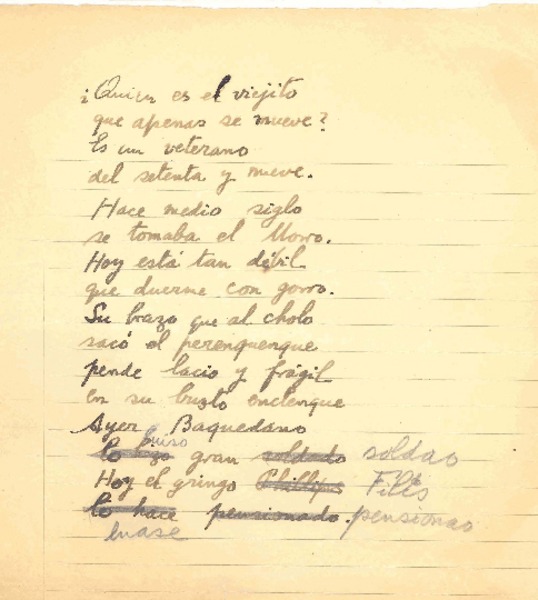 ¿Quien es el viejito
que apenas se mueve?
Es un veterano
del setenta y nueve.
Hace medio siglo
se tomaba el Morro.
Hoy está tan débil
que duerme con gorro.
Su brazo que al cholo
sacó el perenquenque
pende lacio y frágil
en su busto enclenque
Ayer Baquedano
lo hizo gran soldado soldao
Hoy el gringo Phillips Filis
lo hace pensionado. pensionao